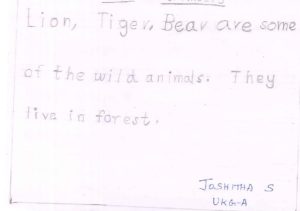 Lion, Tiger, Bear are some
of the wild animals. They
live in forest.
JASHITHA S
UKG-A